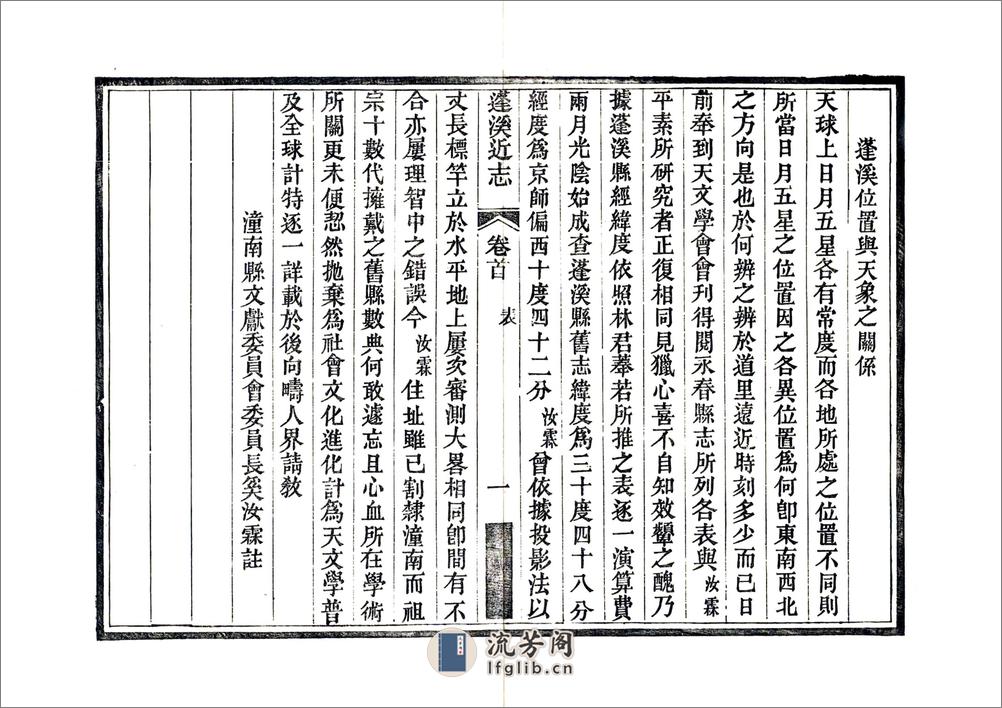 蓬溪位置與天象之關係
天球上日月五星各有常度而各地所處之位置不同則
所當日月五星之位置因之各異位置爲何卽東南西北
之方向是也於何辨之辨於道里遠近時刻多少而已日
前奉到天文學會會刊得閱永春縣志所列各表與汝霖
平素所研究者正復相同見獵心喜不自知效顰之醜乃
據蓬溪縣經緯度依照林君菶若所推之表逐一演算費
兩月光陰始成查蓬溪縣舊志緯度爲三十度四十八分
經度爲京師偏西十度四十二分汝霖曾依據投影法以
蓬溪近志 卷首 表 一
丈長標竿立於水平地上屢次審測大畧相同卽間有不
合亦屢理智中之錯誤今汝霖住址雖已割隸潼南而祖
宗十數代擁戴之舊縣數典何敢遽忘且心血所在學術
所關更未便恝然拋棄爲社會文化進化計爲天文學普
及全球計特逐一詳載於後向疇人界請教
潼南縣文獻委員會委員長奚汝霖註
流芳阁
lfglib.cn